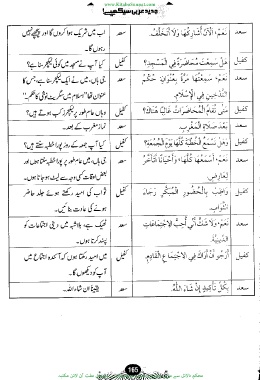 www.KitaboSunnat.com
جدید عربی سیکھیے
سعد نَعَمْ، اَلْآنَ أُشَارِكُهَا وَلَا أَتَخَلَّفُ. سعد اب میں شریک ہوا کروں گا اور پیچھے نہیں
رہوں گا۔
كفيل هَلْ سَمِعْتَ مُحَاضَرَةً فِي الْمَسْجِدِ؟ کفیل کیا آپ نے مسجد میں کوئی لیکچر سنا ہے؟
سعد نَعَمْ، سَمِعْتُهَا مَرَّةً بِعُنْوَانِ حُكْمِ سعد جی ہاں، میں نے ایک لیکچر سنا ہے، جس کا
التَّدْخِينِ فِي الْإِسْلَامِ. عنوان تھا "اسلام میں سگریٹ نوشی کا حکم"۔
كفيل مَتَى تُقَامُ الْمُحَاضَرَاتُ غَالِبًا هُنَاكَ؟ کفیل وہاں عام طور پر لیکچرز کب ہوتے ہیں؟
سعد بَعْدَ صَلَاةِ الْمَغْرِبِ. سعد نماز مغرب کے بعد۔
كفيل هَلْ تَسْمَعُ الْخُطْبَةَ كُلَّهَا يَوْمَ الْجُمُعَةِ؟ کفیل کیا آپ جمعہ کے روز پورا خطبہ سنتے ہیں؟
سعد نَعَمْ، أَسْمَعُهَا كُلَّهَا، وَأَحْيَانًا أَتَأَخَّرُ سعد جی ہاں، میں عام طور پر پورا خطبہ سنتا ہوں اور
لِعَارِضٍ. بعض اوقات کسی وجہ سے لیٹ ہو جاتا ہوں۔
كفيل وَاظِبْ بِالْحُضُورِ الْمُبَكِّرِ رَجَاءَ کفیل ثواب کی امید رکھتے ہوئے جلد حاضر
الثَّوَابِ. ہونے کی عادت بنائیں۔
سعد نَعَمْ، وَلَا شَكَّ أَنِّي أُحِبُّ الْاِجْتِمَاعَاتِ سعد ٹھیک ہے، بلاشبہ میں دینی اجتماعات کو
الدِّينِيَّةَ. پسند کرتا ہوں۔
كفيل أَرْجُو أَنْ أَرَاكَ فِي الْاِجْتِمَاعِ الْقَادِمِ. کفیل میں امید رکھتا ہوں کہ آئندہ اجتماع میں
آپ کو دیکھوں گا۔
سعد بِكُلِّ تَأْكِيدٍ إِنْ شَاءَ اللّٰهُ. سعد یقیناً ان شاء اللہ۔
165